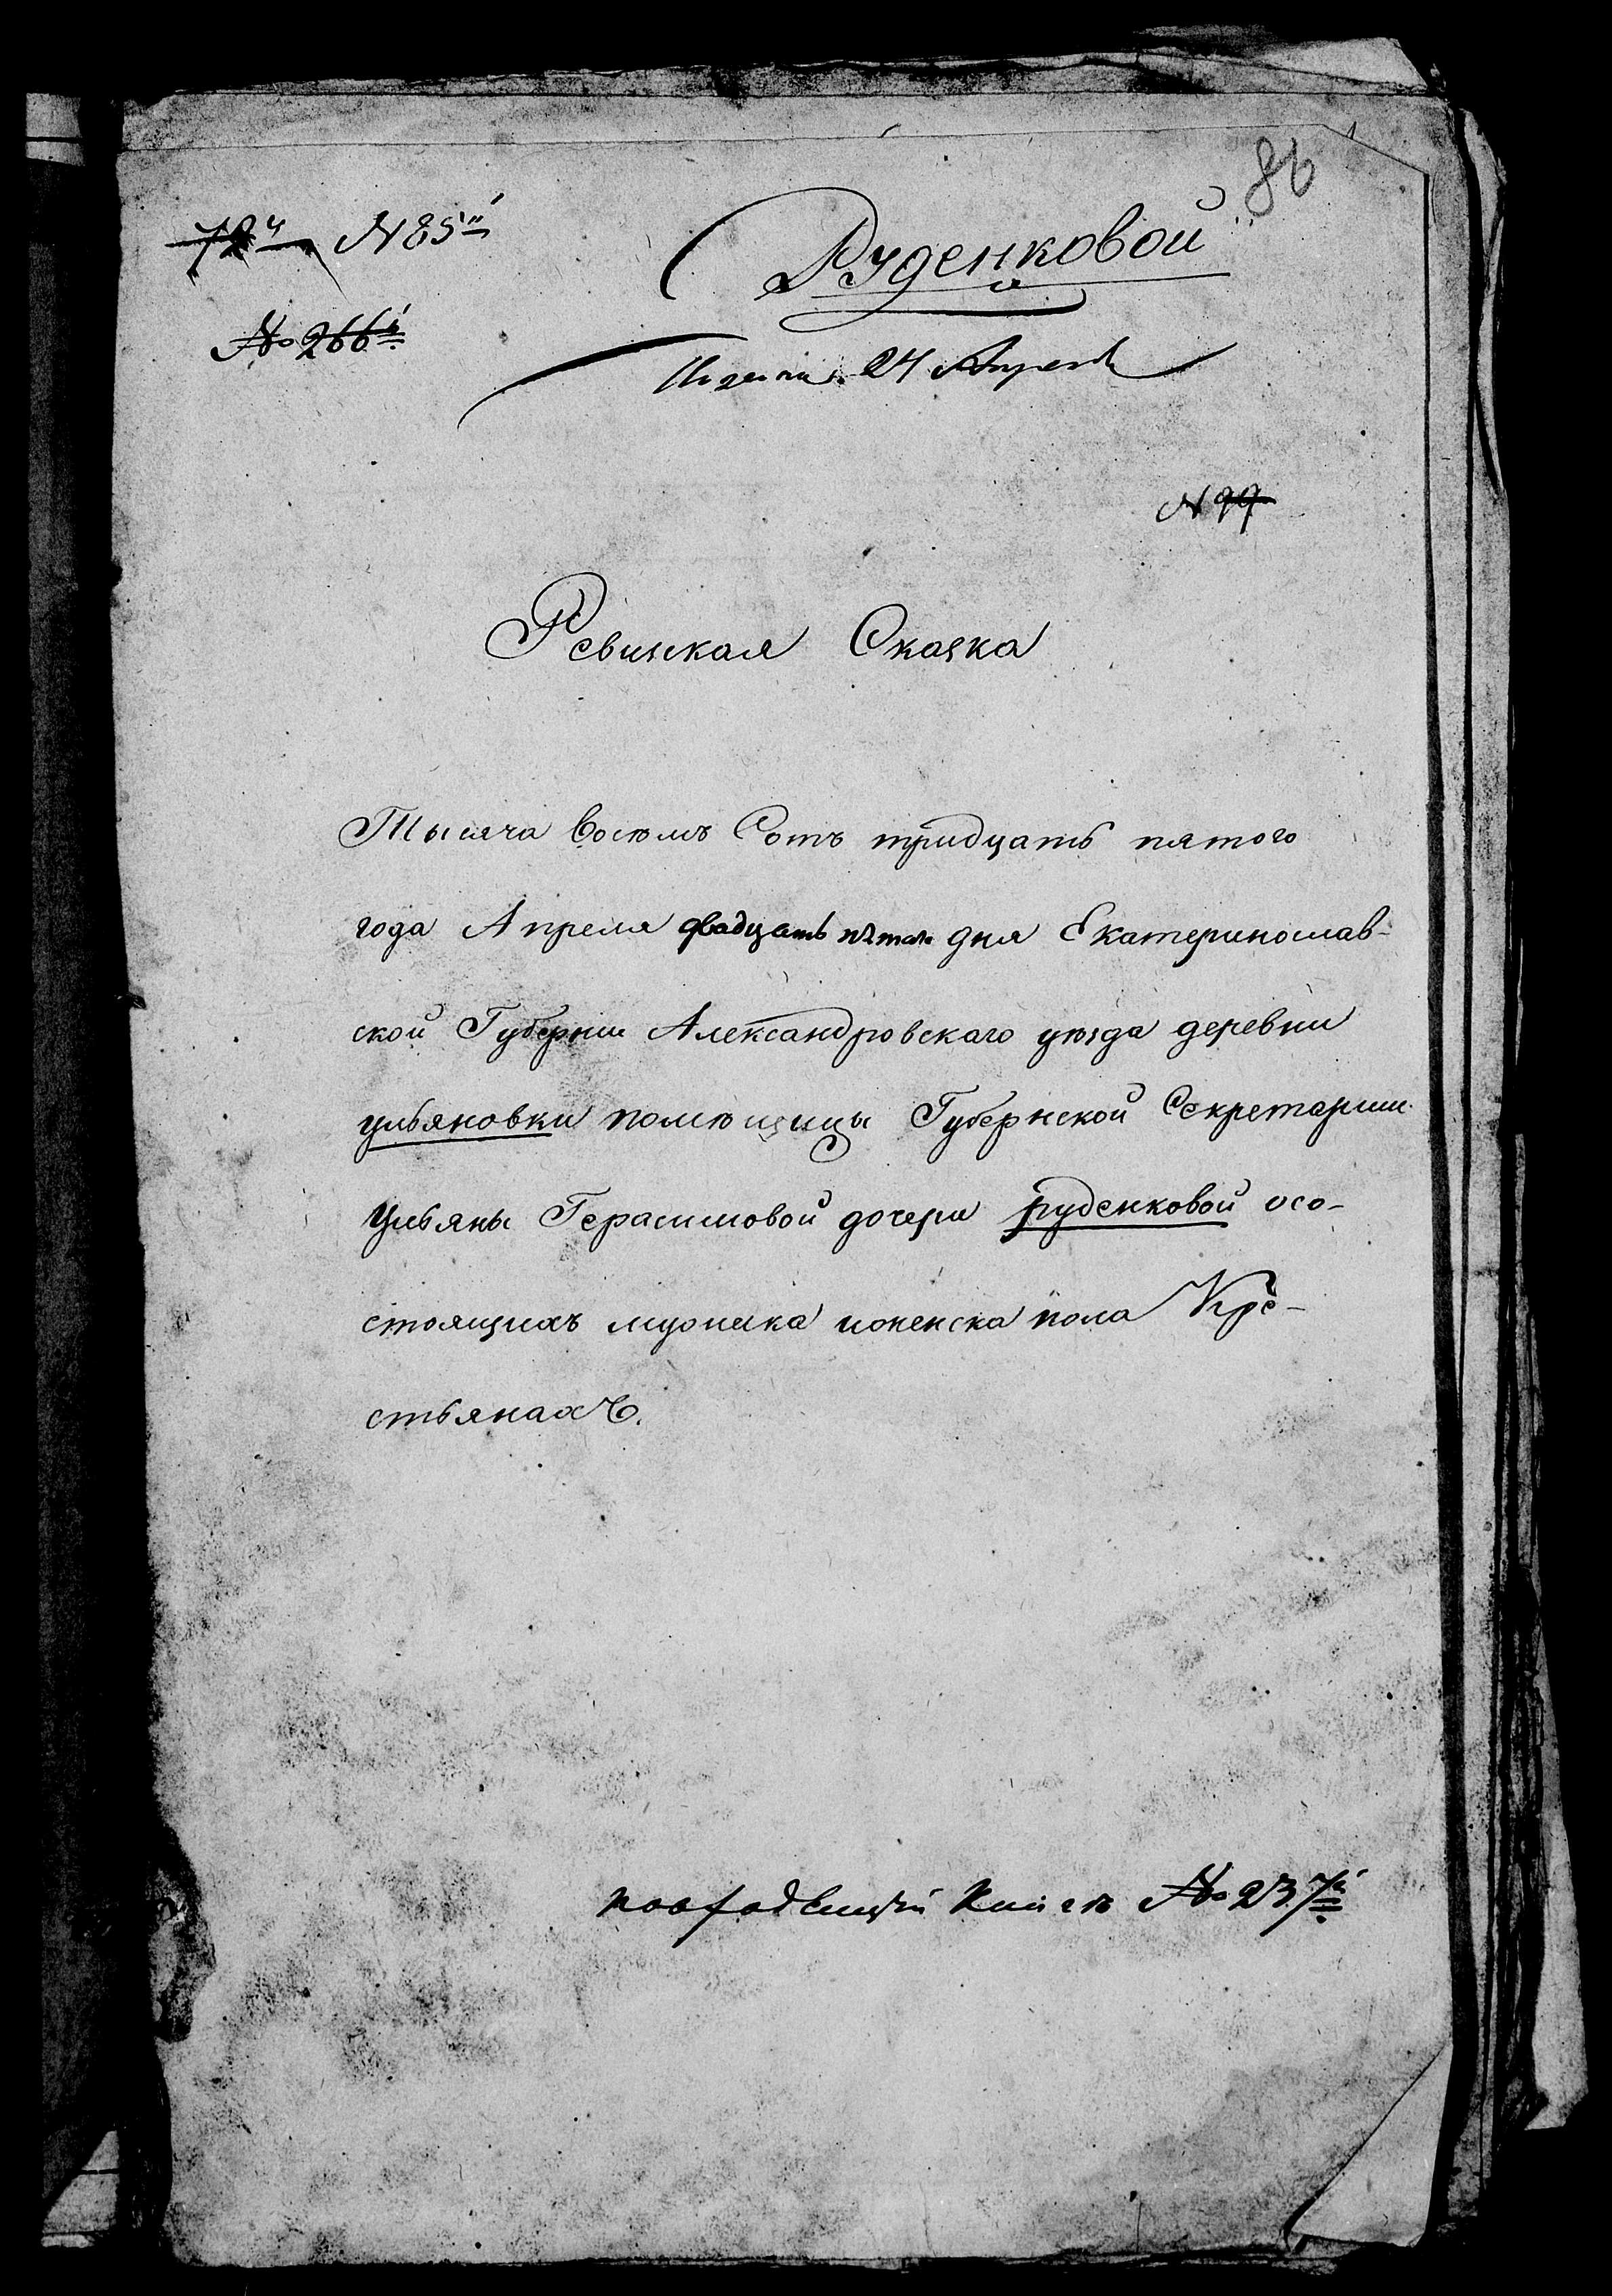 86
72й N 85й
Руденковой
№ 266й
24 Апреля
N 99
Ревиская Сказка
Тысяча Восемъ Сотъ тридцать пятого
года Апреля двадцать пятого дня Екатеринослав-
ской Губернии Александровскаго уѣзда деревни
ульяновки помѣщицы Губернской Секретарши
Ульяны Герасимовой дочери руденковой осо-
стоящихъ мужеска иженска пола Кре-
стьянахъ.
по входящей Книгѣ № 237й